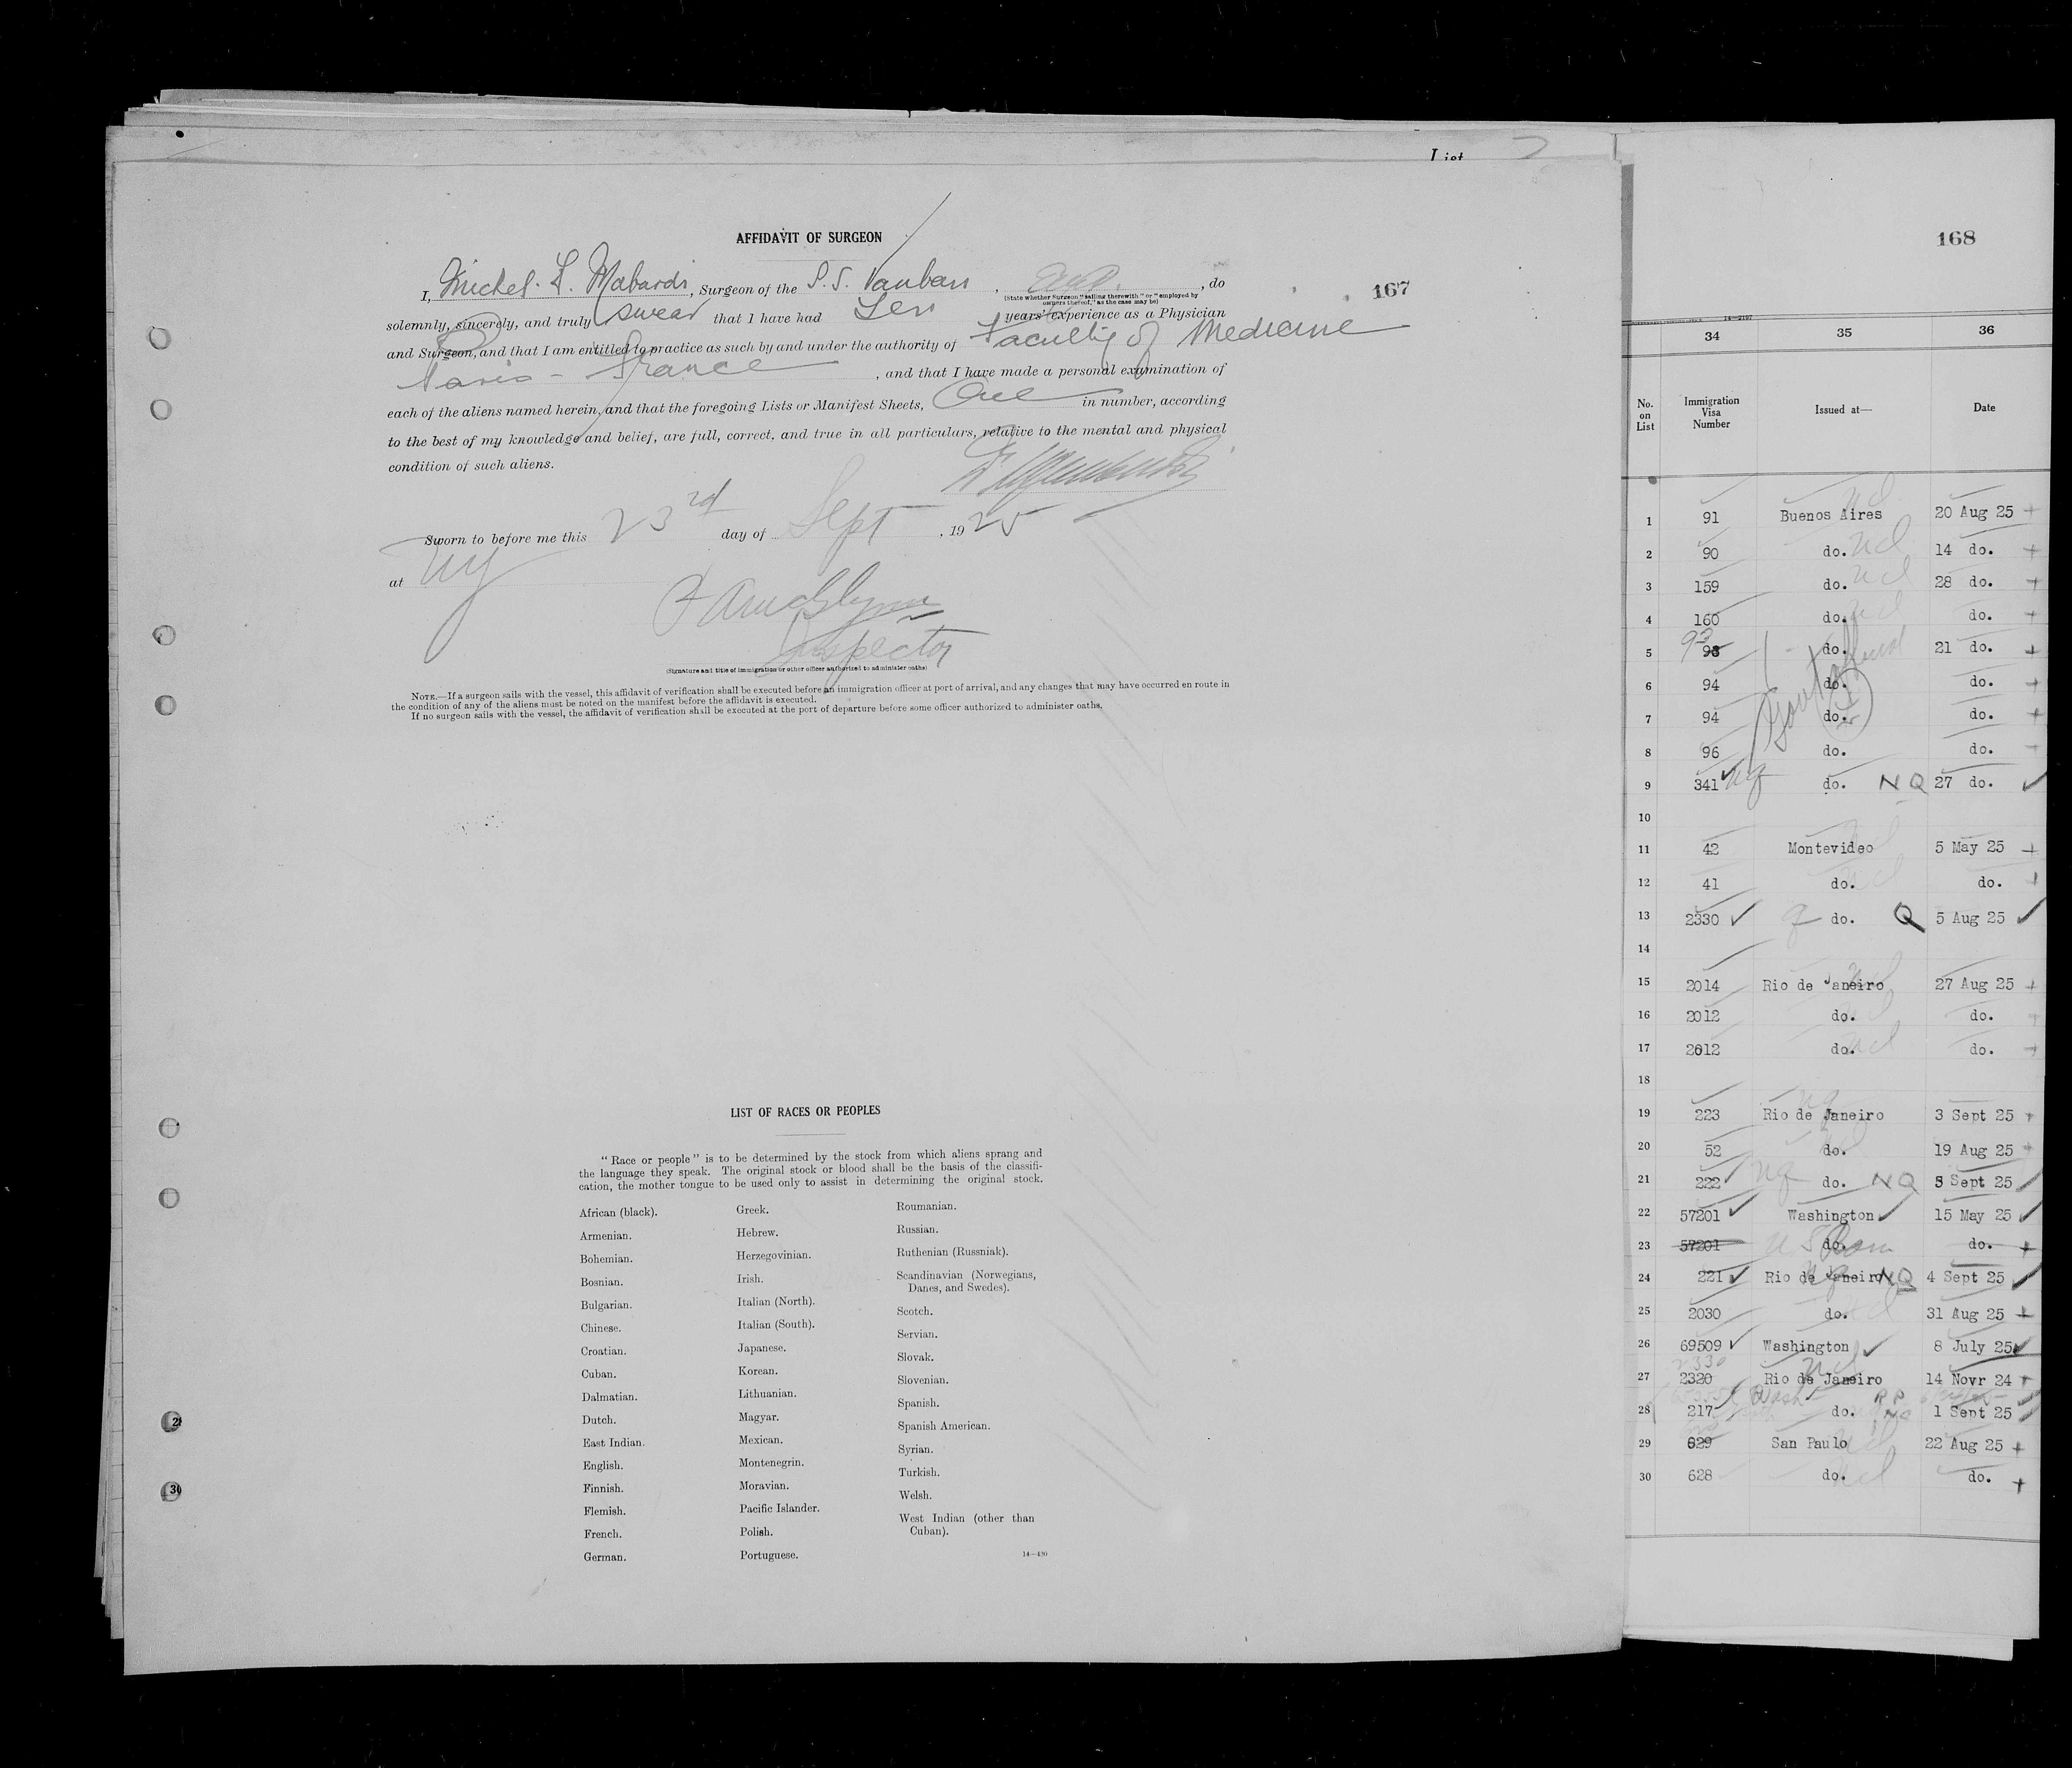 List
AFFIDAVIT OF SURGEON
I, Michel. L. Mabardi, Surgeon of the S.S. Vauban, Emp., do
(State whether Surgeon "sailing therewith" or "employed by owners thereof," as the case may be)
solemnly, sincerely, and truly swear that I have had Ten years' experience as a Physician
and Surgeon, and that I am entitled to practice as such by and under the authority of Faculty of Medicine
Paris - France, and that I have made a personal examination of
each of the aliens named herein, and that the foregoing Lists or Manifest Sheets, One in number, according
to the best of my knowledge and belief, are full, correct, and true in all particulars, relative to the mental and physical
condition of such aliens.
Sworn to before me this 23rd day of Sept, 1925
at NY
Inspector
(Signature and title of immigration or other officer authorized to administer oaths)
NOTE.—If a surgeon sails with the vessel, this affidavit of verification shall be executed before an immigration officer at port of arrival, and any changes that may have occurred en route in
the condition of any of the aliens must be noted on the manifest before the affidavit is executed.
If no surgeon sails with the vessel, the affidavit of verification shall be executed at the port of departure before some officer authorized to administer oaths.
167
LIST OF RACES OR PEOPLES
"Race or people" is to be determined by the stock from which aliens sprang and
the language they speak. The original stock or blood shall be the basis of the classifi-
cation, the mother tongue to be used only to assist in determining the original stock.
African (black).
Armenian.
Bohemian.
Bosnian.
Bulgarian.
Chinese.
Croatian.
Cuban.
Dalmatian.
Dutch.
East Indian.
English.
Finnish.
Flemish.
French.
German.
Greek.
Hebrew.
Herzegovinian.
Irish.
Italian (North).
Italian (South).
Japanese.
Korean.
Lithuanian.
Magyar.
Mexican.
Montenegrin.
Moravian.
Pacific Islander.
Polish.
Portuguese.
Roumanian.
Russian.
Ruthenian (Russniak).
Scandinavian (Norwegians,
Danes, and Swedes).
Scotch.
Servian.
Slovak.
Slovenian.
Spanish.
Spanish American.
Syrian.
Turkish.
Welsh.
West Indian (other than
Cuban).
14—430
168
14-2107
34 35 36
No. on List Immigration Visa Number Issued at— Date
1 91 Buenos Aires 20 Aug 25
2 90 do. 14 do.
3 159 do. 28 do.
4 160 do. do.
5 93 do. 21 do.
6 94 do. do.
7 94 do. do.
8 96 do. do.
9 341 nq do. NQ 27 do.
10
11 42 Montevideo 5 May 25
12 41 do. do.
13 2330 q do. Q 5 Aug 25
14
15 2014 Rio de Janeiro 27 Aug 25
16 2012 do. do.
17 2012 do. do.
18
19 223 Rio de Janeiro 3 Sept 25
20 52 do. 19 Aug 25
21 222 nq do. NQ 3 Sept 25
22 57201 Washington 15 May 25
23 57201 do. do.
24 221 Rio de Janeiro NQ 4 Sept 25
25 2030 do. 31 Aug 25
26 69509 Washington 8 July 25
27 2320 Rio de Janeiro 14 Novr 24
28 217 do. 1 Sept 25
29 629 San Paulo 22 Aug 25
30 628 do. do.